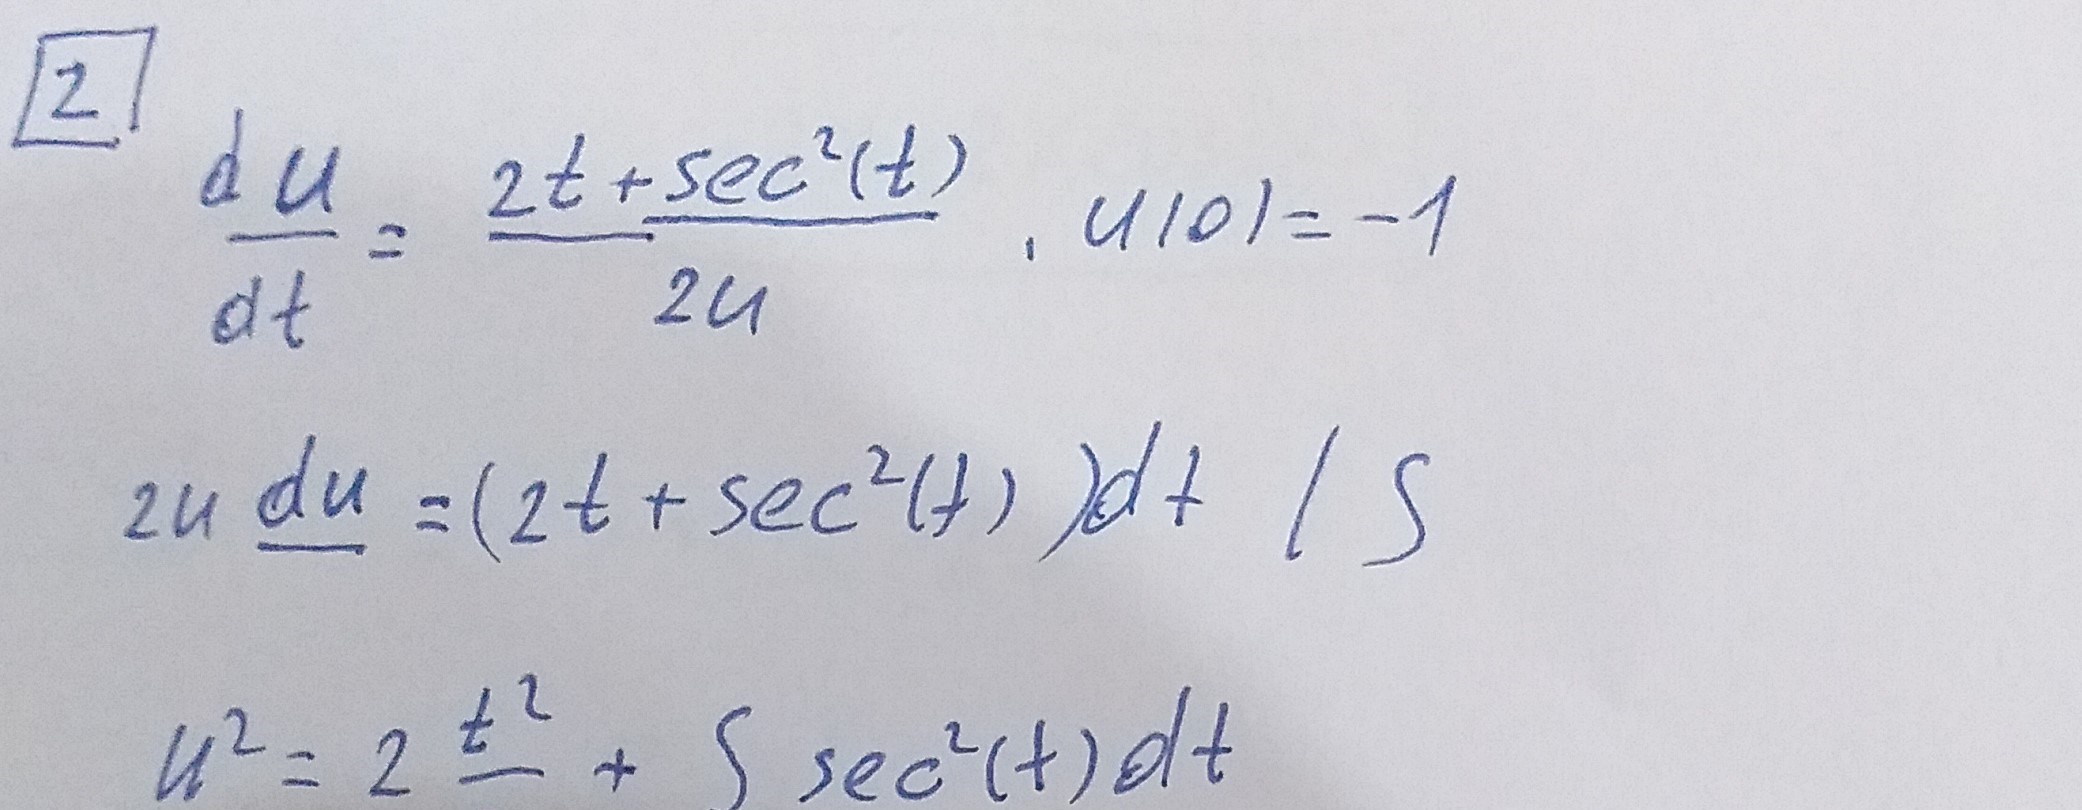 2
du/dt = (2t + sec²(t))/2u , u(0) = -1
2u du = (2t + sec²(t))dt / ∫
u² = 2 t² + ∫ sec²(t)dt